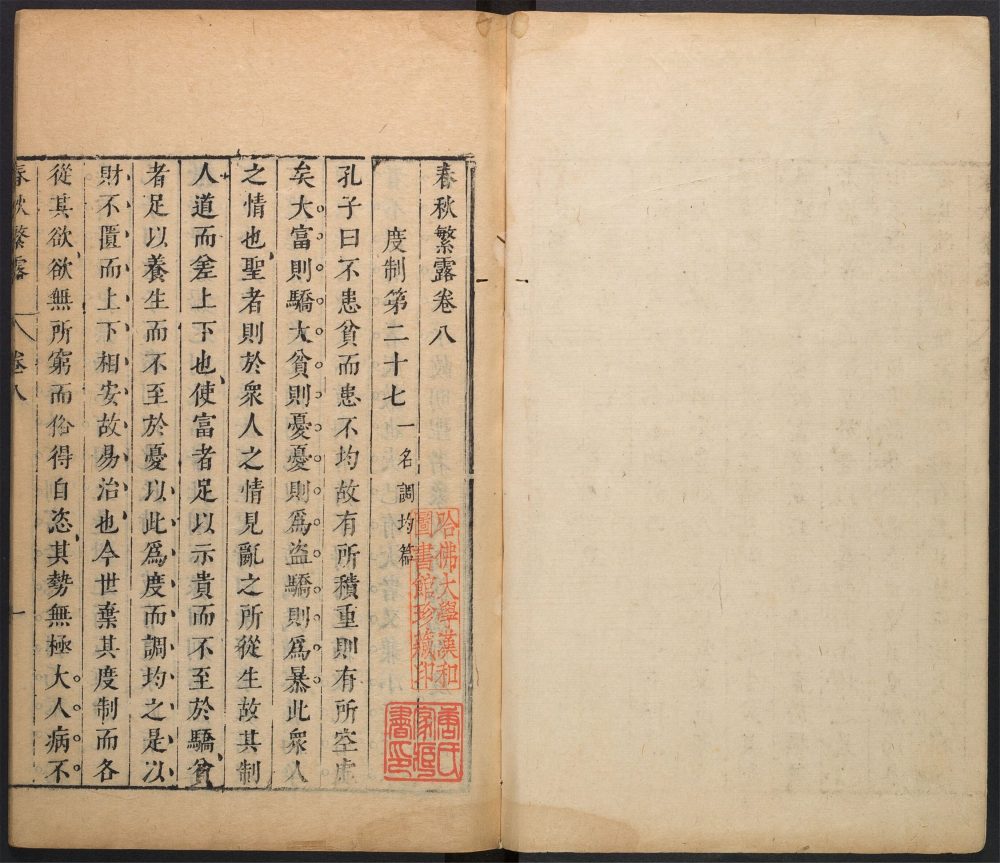 春秋繁露卷八
度制第二十七 一名調均篇
孔子曰不患貧而患不均故有所積重則有所空虛
矣大富則驕大貧則憂憂則爲盜驕則爲暴此衆人
之情也聖者則於衆人之情見亂之所從生故其制
人道而差上下也使富者足以示貴而不至於驕貧
者足以養生而不至於憂以此爲度而調均之是以
財不匱而上下相安故易治也今世棄其度制而各
從其欲欲無所窮而俗得自恣其勢無極大人病不
春秋繁露 卷八 一
哈佛大學漢和
圖書館珍藏印